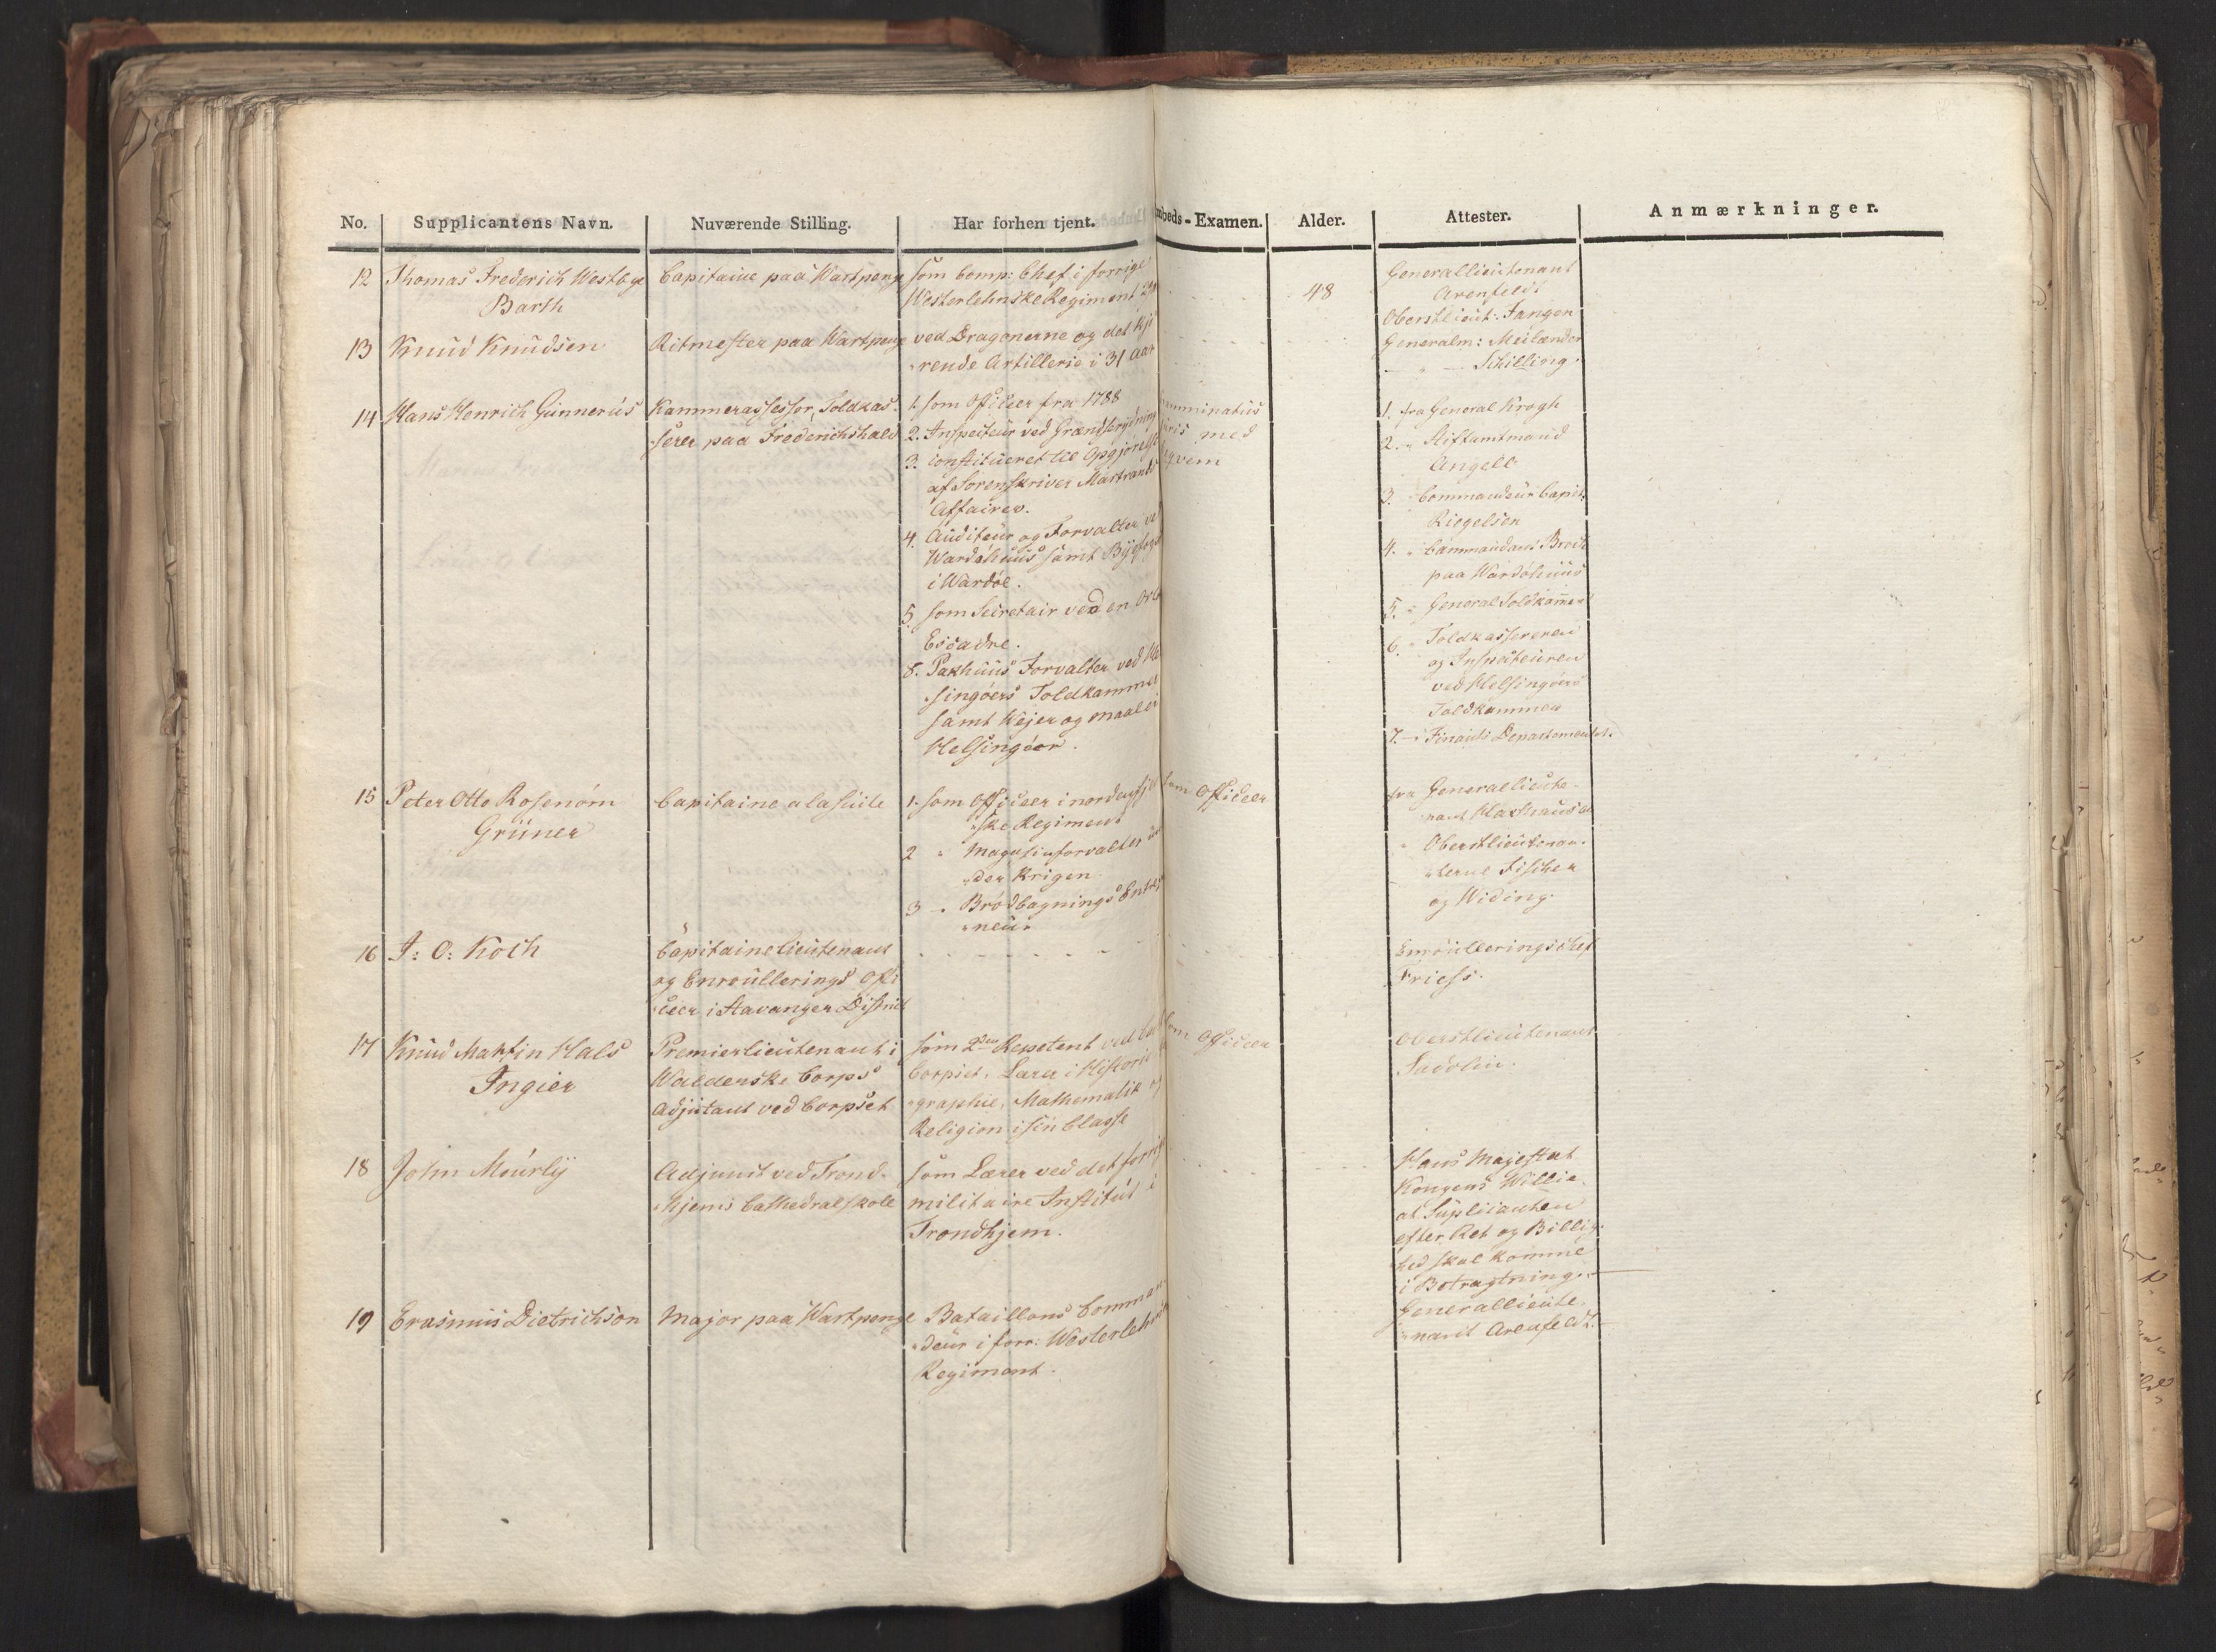 No. Supplicantens Navn. Nuværende Stilling. Har forhen tjent. Embeds-Examen. Alder. Attester. Anmærkninger.
12 Thomas Frederich Westbye
Barth
Capitaine paa Wartpenge
som Comp: Chef i forrige
Westerlehnske Regiment
48
Generallieutenant
Arenfeldt
Oberstlieut: Fangen
13 Knud Knudsen
Ritmester paa Wartpenge
ved Dragonerne og det kjø
rende Artillerie i 31 Aar
Generalm: Meilænder
— " — Schilling.
14 Hans Henrich Gunnerus
Kammerassessor, Toldkas
serer paa Frederichshald
1. som Officeer fra 1788
2. Inspecteur ved Grændserydning
3. constitueret til Opgjørelse
af Sorenskriver Martrands
Affairer.
4. Auditeur og Forvalter ved
Wardøhuus samt Byefoged
i Wardøe.
5. som Secretair ved en Orl
Escadre.
8. Pakhuus Forvalter ved Hel
singöers Toldkammer
samt Vejer og maaler i
Helsingöer.
examinatus
juris med
eqvem
1. fra General Krogh
2. " Stiftamtmand
Angell
3. " Commandeur Capit.
Riegelsen
4. " Commandant Broch
paa Wardöhuus
5. " General Toldkammeret
6. " Toldkassereren
og Inspecteuren
ved Helsingöers
Toldkammer
7. — " Finants Departementet.
15 Peter Otto Rosenörn
Grüner
Capitaine a la suite
1. som Officeer i nordenfjel
ske Regiment
2 " Magasinforvalter un
der Krigen
3 — " Brödbagnings Entre
neur
som Officeer
fra Generallieute-
nant Haxthausen
" Oberstlieutenan-
terne Fischer
og Widing.
16 J: C: Koch
Capitainelieutenant
og Enroullerings Offi
ceer i Stavanger District
Enroulleringschef
Friess.
17 Knud Martin Hals
Ingier
Premierlieutenant i
Waldenske Corps
Adjutant ved Corpset
som 2den Repetent ved Cad
Corpset, Lærer i Historie
graphie, Mathematik og
Religion i sin Classe
som Officeer
Oberstlieutenant
Sadolin.
18 John Mourly
Adjunct ved Trond-
hjems Cathedralskole
som Lærer ved det forrige
militaire Institut i
Trondhjem.
Hans Majestæt
Kongens Villie,
at Suplicanten
efter Ret og Billig-
hed skal komme
i Betragtning.
19 Erasmus Dietrichson
Major paa Wartpenge
Bataillons Comman
deur i forr: Westerlehnske
Regiment.
Generallieute-
nant Arenfeldt.